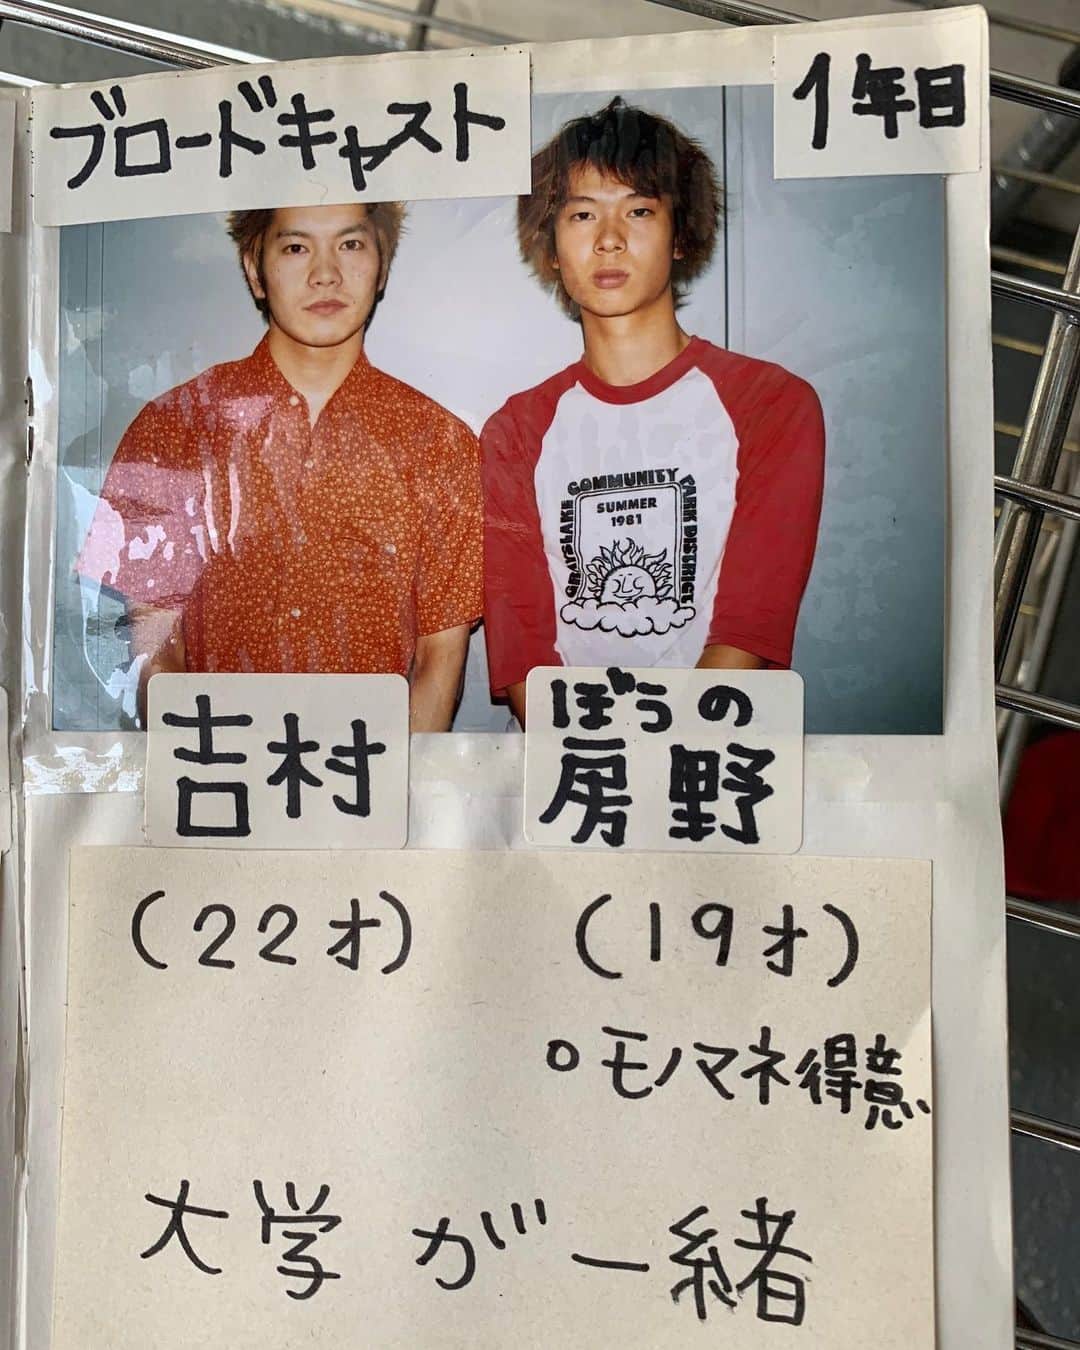 ブロードキャスト
1年目
GRAYSLAKE COMMUNITY PARK DISTRICT
SUMMER
1981
吉村
ぼうの
房野
(22才)
(19才)
○モノマネ得意
大学が一緒